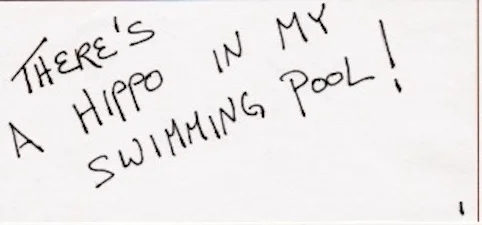 THERE'S
A HIPPO IN MY
SWIMMING POOL!
1